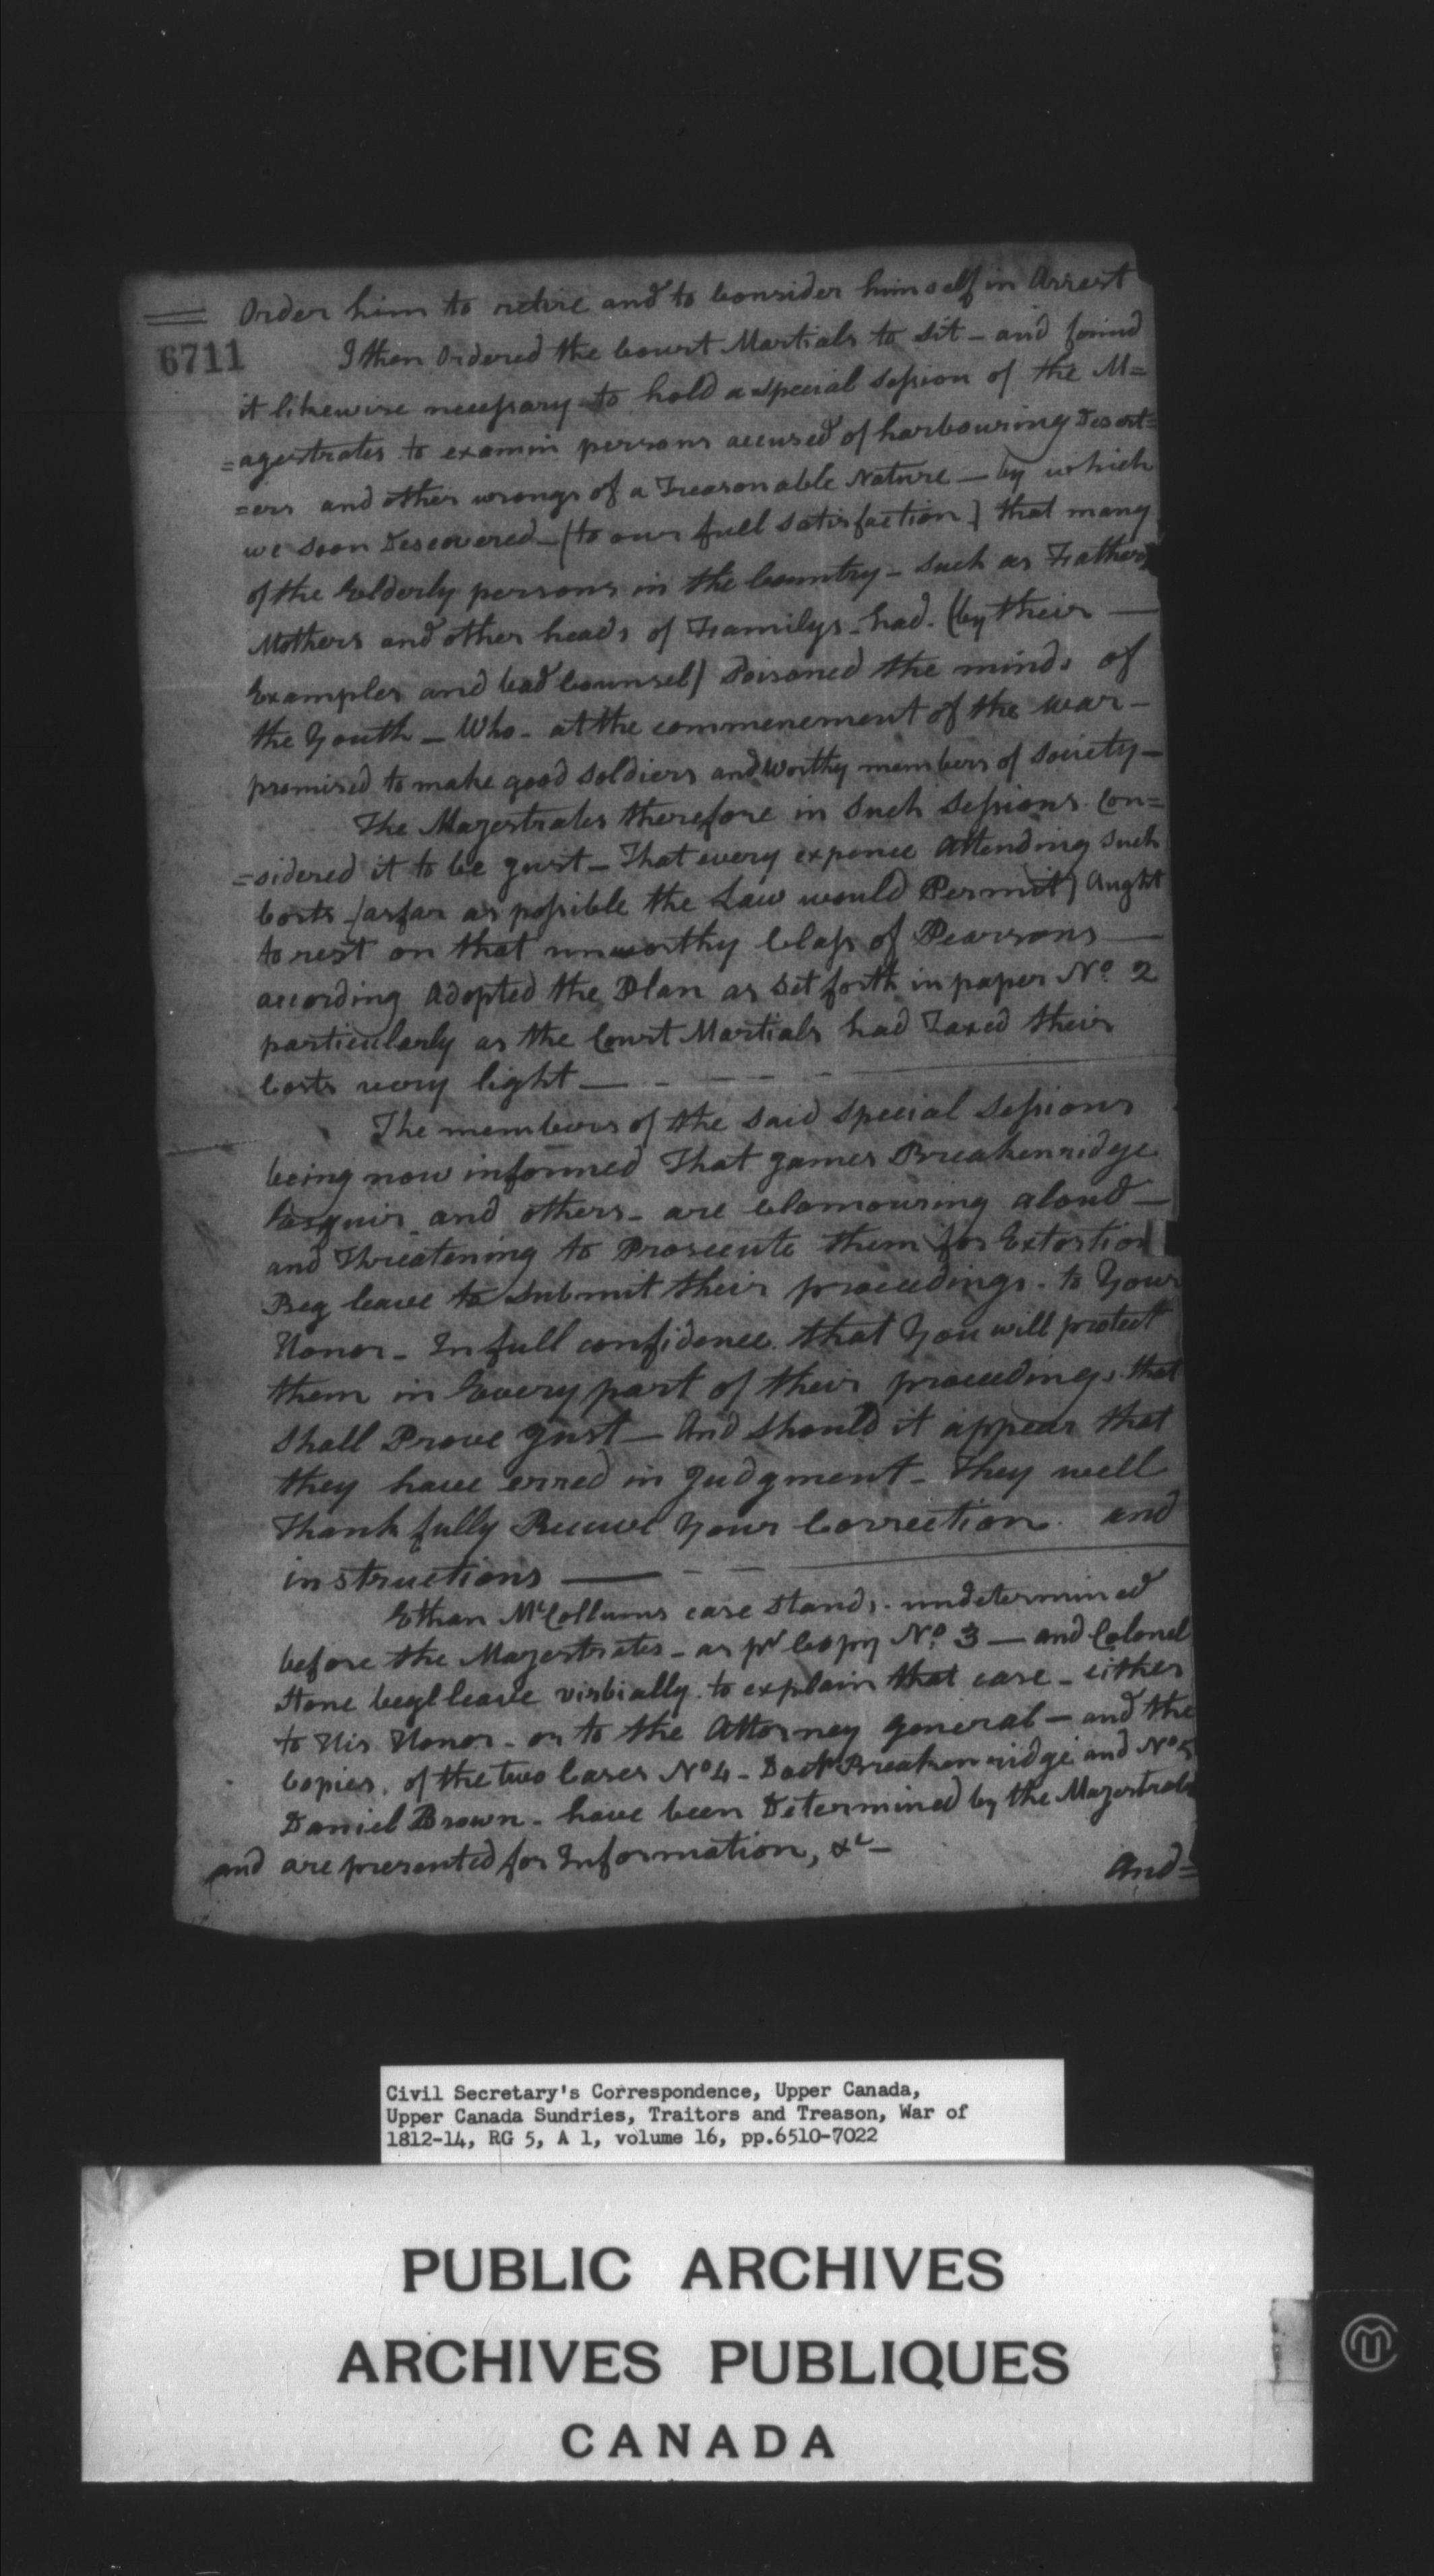 Order him to retire and to Consider himself in Arrest
6711
I then Ordered the Court Martials to sit – and found
it likewise necessary to hold a special Session of the M=
=agestrates to examin persons accused of harbouring Desert=
=ers and other wrongs of a Treasonable Nature – by which
we soon Descovered – (to our full satisfaction) that many
of the Elderly persons in the Country – such as Fathers
Mothers and other heads of Familys – had (by their —
Examples and bad Counsel) Poisoned the minds of
the Youth – Who – at the commenement of the war –
promised to make good soldiers and Worthy members of Society –
The Majestrates therefore in such Sessions Con=
=sidered it to be just – That every expence Attending such
Costs – (as far as possible the Law would Permit) Aught
to rest on that unworthy Class of Pearsons —
according Adopted the Plan as set forth in paper No. 2
particularly as the Court Martials had Taxed their
Costs very light —
The members of the said Special Sessions
being now informed That James Breakenridge
Esquir and others – are Clamouring aloud –
and Threatening to Prosecute them for Extortion
Beg leave to submit their proceedings – to Your
Honor – In full confidence that You will protect
them in Every part of their proceedings that
Shall Prove just – And should it appear that
they have erred in Judgment – They well
Thankfully Receive Your Correction and
instructions —
Ethan McCollums case stands undetermined
before the Majestrates – as pr Copy No. 3 – and Colonel
Stone begs leave virbially to explain that case – either
to His Honor – or to the Attorney General – and the
Copies of the two Cases No 4 – Doct Breakenridge and No 5
Daniel Brown – have been Determined by the Majestrates
and are presented for Information, &c –
And=
Civil Secretary's Correspondence, Upper Canada,
Upper Canada Sundries, Traitors and Treason, War of
1812-14, RG 5, A 1, volume 16, pp.6510-7022
PUBLIC ARCHIVES
ARCHIVES PUBLIQUES
CANADA